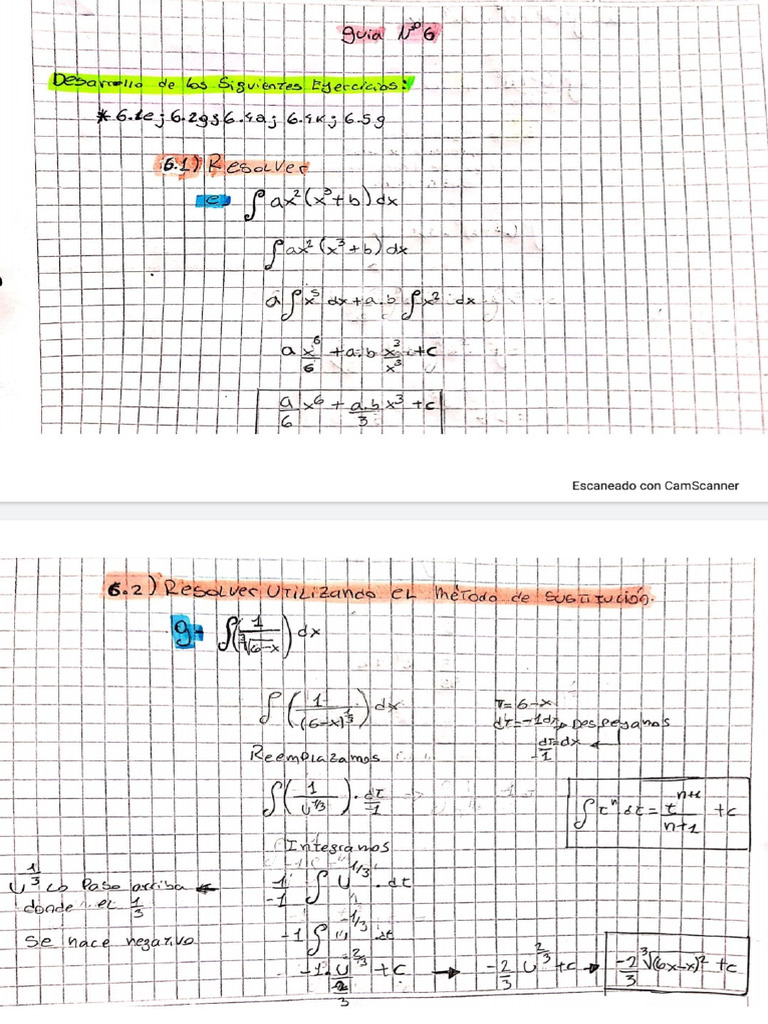 guia N° 6
Desarrollo de los Siguientes Ejercicios:
* 6.1e; 6.2g; 6.4a; 6.4k; 6.5g
6.1) Resolver
e) ∫ ax²(x³+b) dx
∫ ax²(x³+b) dx
a ∫ x⁵ dx + a.b ∫ x² dx
a x⁶/6 + a.b x³/x³ + c
a/6 x⁶ + a.b/3 x³ + c
Escaneado con CamScanner
6.2) Resolver Utilizando el método de sustitución.
g- ∫ (1/∛(6-x)) dx
∫ (1/(6-x)^(1/3)) dx
τ = 6-x
dτ = -1dx Despejamos
dτ/-1 = dx
Reemplazamos
∫ (1/u^(1/3)) . dτ/-1
∫ τⁿ dτ = t^(n+1)/(n+1) + c
Integramos
1/-1 ∫ u^(1/3) . dt
u^(1/3) lo Paso arriba
donde el 1/3
Se hace negativo
-1 ∫ u^(-1/3) dt
-1 . u^(2/3)/(2/3) + c → -2/3 u^(2/3) + c → -2/3 ∛(6x-x)² + c